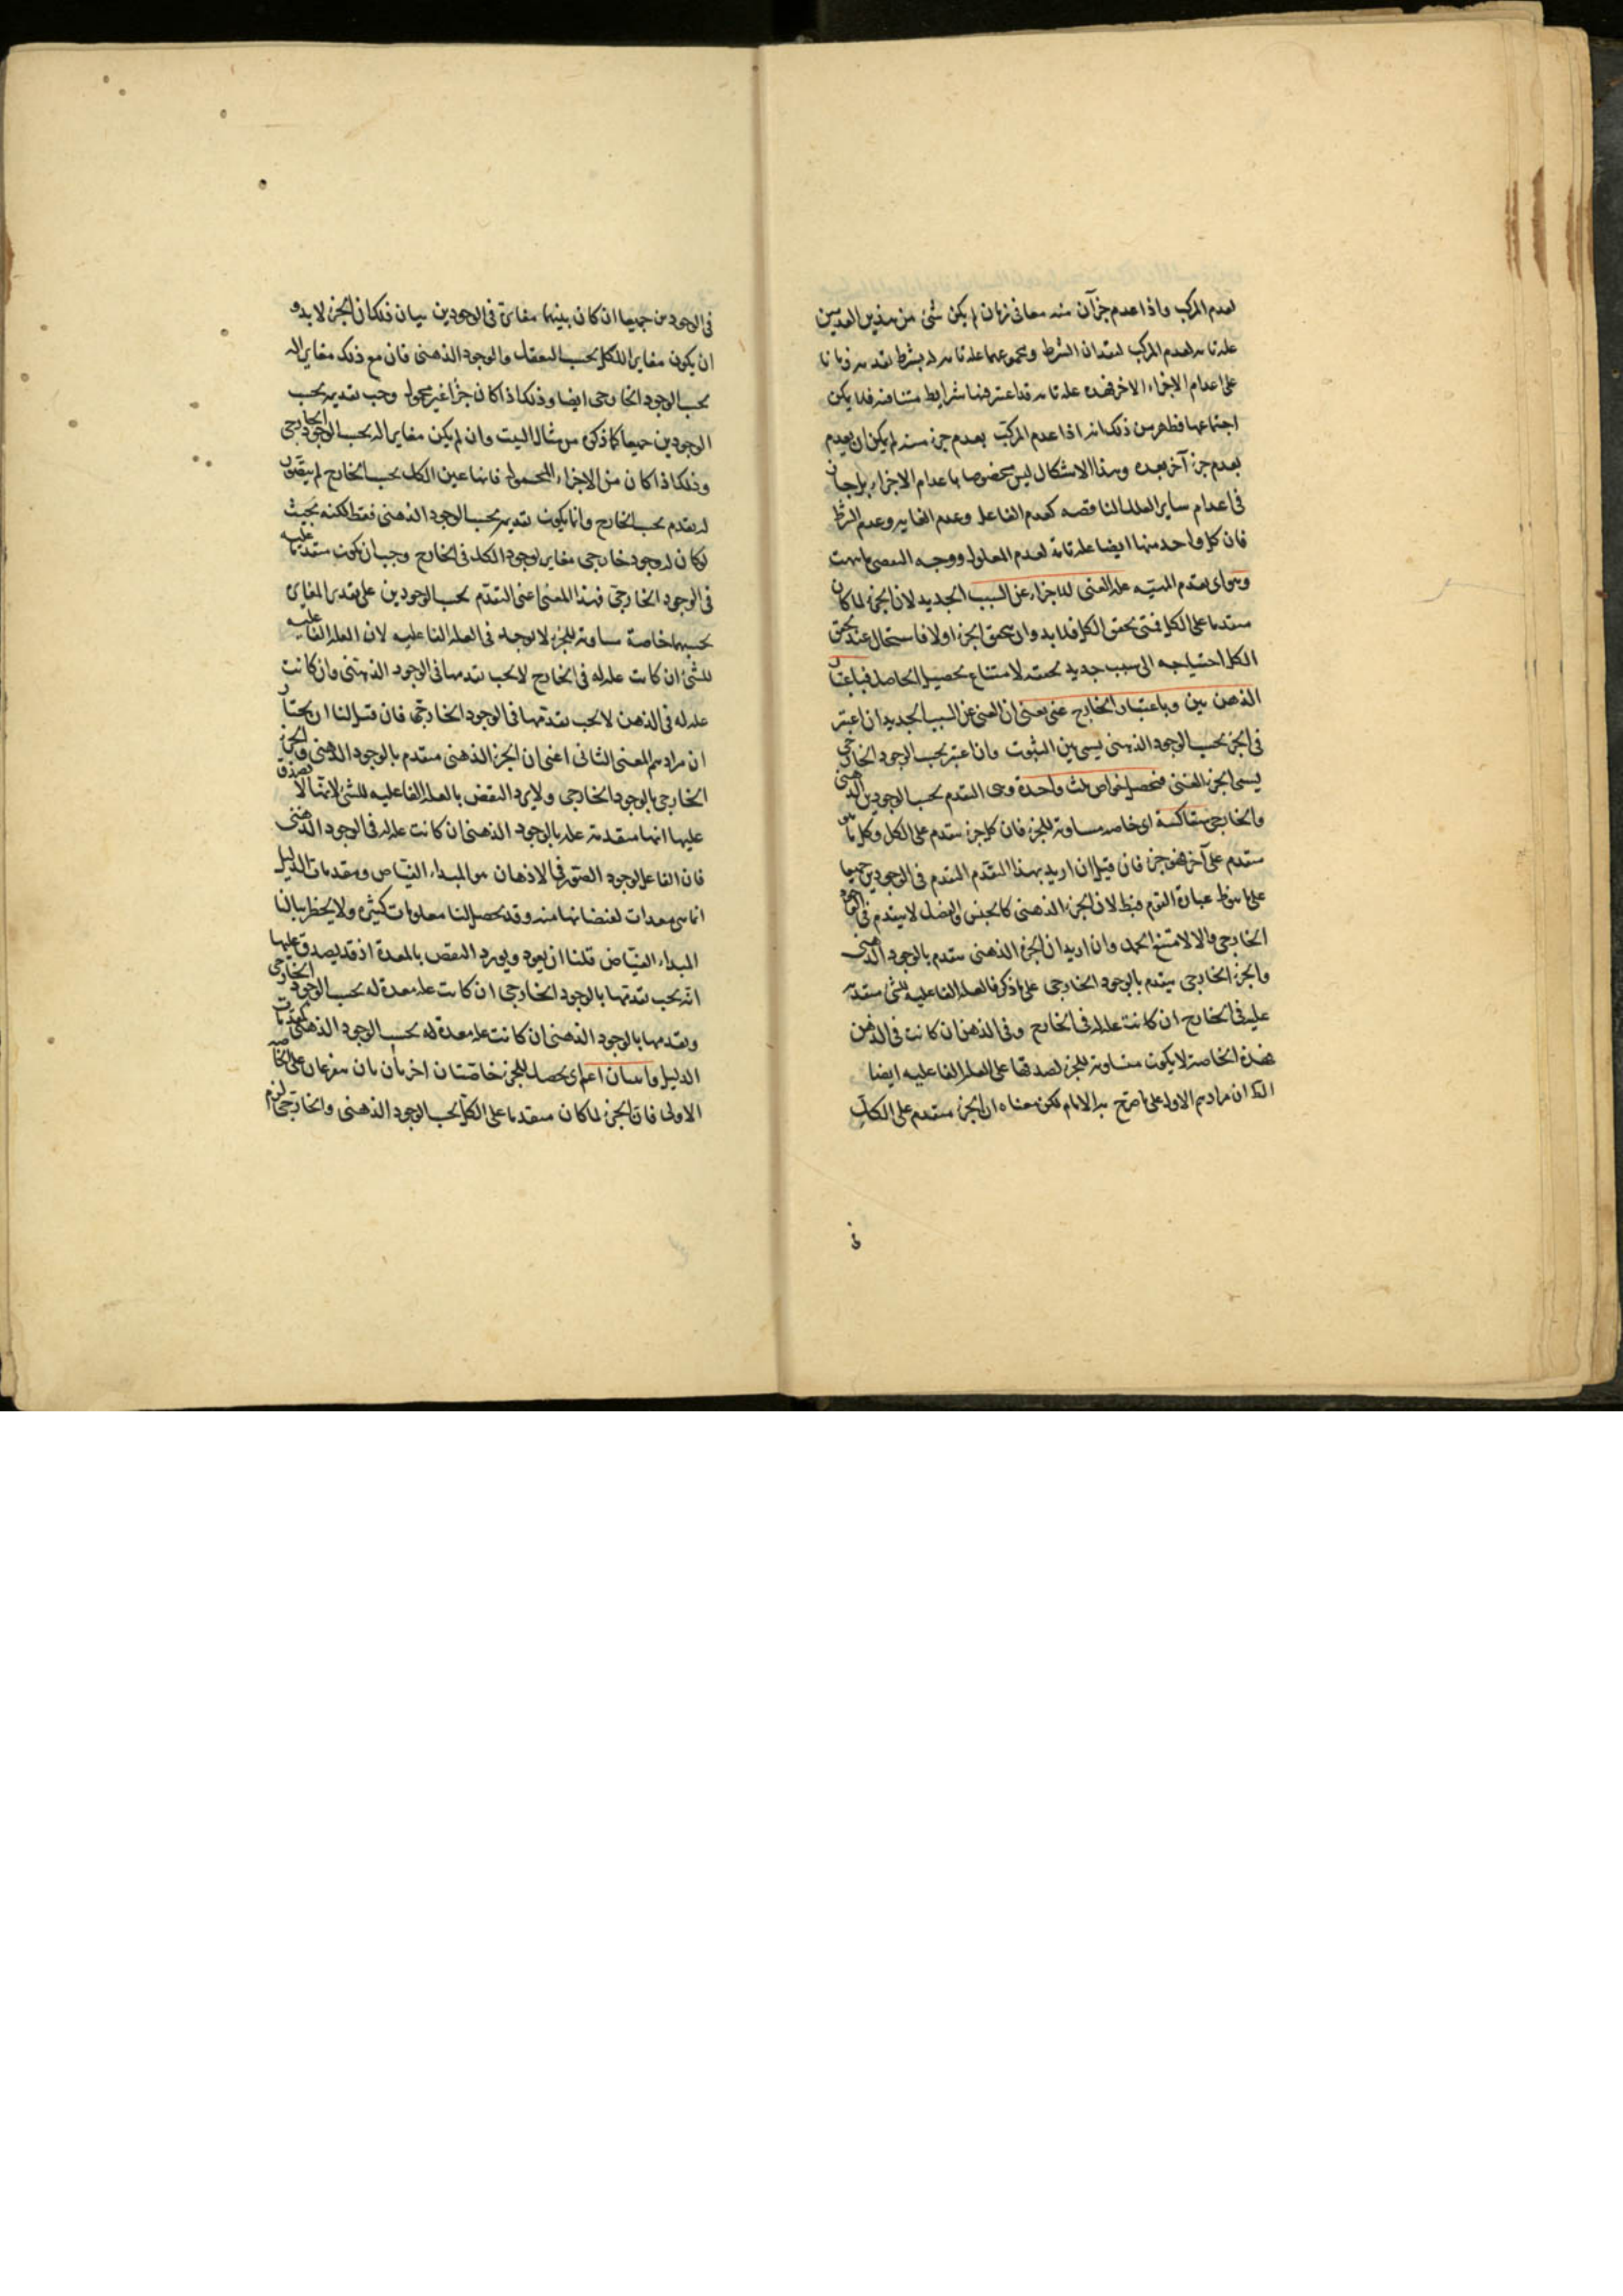 لعدم المركب واذا عدم جزآن منه معا فى زمان لم يكن شئ من هذين العدمين
علة تامه لعدم المركب لفقدان الشرط ومجموعهما علة تامه له بشرط تقدمه زمانا
على اعدام الاجزاء الاخر فهذه علة تامه قد اعتبر فيها شرايط متنافيه فلا يمكن
اجتماعها فظهر من ذلك انه اذا عدم المركب بعدم جزء منه لم يكن ان يعدم
بعدم جزء آخر بعده وهذا الاشكال ليس مخصوصا باعدام الاجزاء بل جار
فى اعدام ساير العلل الناقصه كعدم الفاعل وعدم الغايه وعدم الشرط
فان كل واحد منها ايضا علة تامة لعدم المعلول ووجه التفصى ما نبهت
وهو اى تقدم علة الغنى للاجزاء عن السبب الجديد لان الجزء لما كان
متقدما على الكل فمتى تحقق الكل فلا بد وان يتحقق الجزء اولا فاستحال عند تحقق
الكل احتياجه الى سبب جديد لامتناع تحصيل الحاصل فباعتبار
الذهن بين وباعتبار الخارج غنى يعنى ان الغنى عن السبب الجديد ان اعتبر
فى الجزء بحسب الوجود الذهنى يسمى بين الثبوت وان اعتبر بحسب الوجود الخارجى
يسمى الجزء الغنى فتحصل خواص ثلث واحدة وهى التقدم بحسب الوجودين الذهنى
والخارجى متعاكسة اى خاصه مساويه للجزء فان كل جزء متقدم على الكل وكل ما
متقدم على آخر فهو جزء فان قيل ان اريد بهذا التقدم التقدم فى الوجودين جميعا
على ما هو ظ عبارة القوم فبط لان الجزء الذهنى كالجنس والفصل لا يتقدم فى الوجود
الخارجى والا لامتنع الحمل وان اريد ان الجزء الذهنى متقدم بالوجود الذهنى
والجزء الخارجى يتقدم بالوجود الخارجى على ما ذكر فالعلة الفاعليه للشئ متقدمه
عليه فى الخارج ان كانت علة له فى الخارج وفى الذهن ان كانت فى الذهن
فهذه الخاصة لا يكون مساويه للجزء لصدقها على العلة الفاعليه ايضا
ان مرادهم الاول على ما صرح به الامام لكن معناه ان الجزء متقدم على الكل
فى الوجودين جميعا ان كان بينهما مغايرة فى الوجودين بيان ذلك ان الجزء لا بد و
ان يكون مغايرا للكل بحسب التعقل والوجود الذهنى فان مع ذلك مغاير اله
بحسب الوجود الخارجى ايضا وذلك اذا كان جزأ غير محمول وجب تقديمه بحسب
الوجودين جميعا كما ذكره من مثال البيت وان لم يكن مغايرا له بحسب الوجود الخارجى
وذلك اذا كان من الاجزاء المحموله فانها عين الكل بحسب الخارج لم يتصور
له تقدم بحسب الخارج وانما يكون تقديمه بحسب الوجود الذهنى فقط لكنه بحيث
لو كان له وجود خارجى مغاير لوجود الكل فى الخارج وجب ان يكون متقدما عليه
فى الوجود الخارجى فهذا المعنى اعنى التقدم بحسب الوجودين على تقدير المغايرة
بحسبهما خاصة مساوية للجزء لا توجد فى العلة الفاعليه لان العلة الفاعليه
للشئ ان كانت علة له فى الخارج لا يجب تقدمها فى الوجود الذهنى وان كانت
علة له فى الذهن لا يجب تقدمها فى الوجود الخارجى فان قيل لنا ان نختار
ان مرادهم المعنى الثانى اعنى ان الجزء الذهنى متقدم بالوجود الذهنى والجزء
الخارجى بالوجود الخارجى ولا يرد النقض بالعلة الفاعليه للشئ لانها لا تصدق
عليها انها متقدمة عليه بالوجود الذهنى ان كانت علة له فى الوجود الذهنى
فان الفاعل لوجود الصور فى الاذهان هو المبداء الفياض ومقدمات الدليل
انما هى معدات لفيضانها منه وقد يحصل لنا معلومات كثيره ولا يخطر ببالنا
المبداء الفياض قلنا ان يعود ويورد النقض بالمعدة اذ قد يصدق عليها
انه يجب تقدمها بالوجود الخارجى ان كانت علة معدة له بحسب الوجود الخارجى
وتقدمها بالوجود الذهنى ان كانت علة معدة له بحسب الوجود الذهنى كمقدمات
الدليل اى يحصل للجزء خاصتان اخريان متفرعتان على الخاصه
الاولى فان الجزء لما كان متقدما على الكل بحسب الوجود الذهنى والخارجى لزم